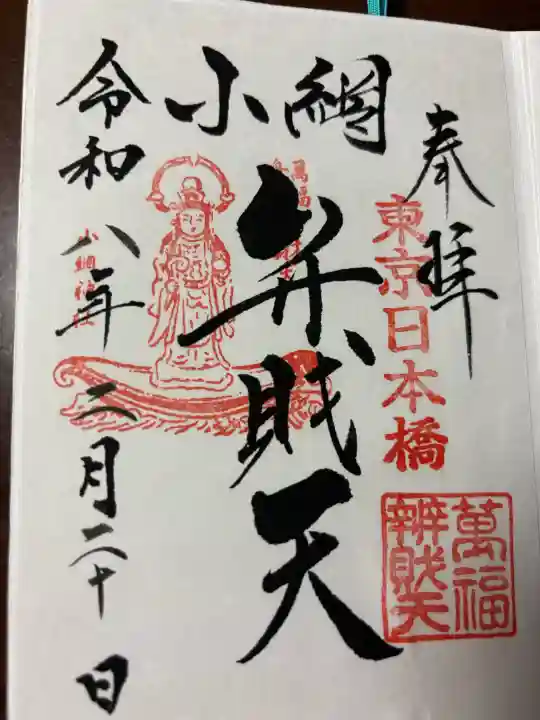 奉拝
東京日本橋
萬福
辨財天
小網
弁財天
小網神社
令和八年二月二十日